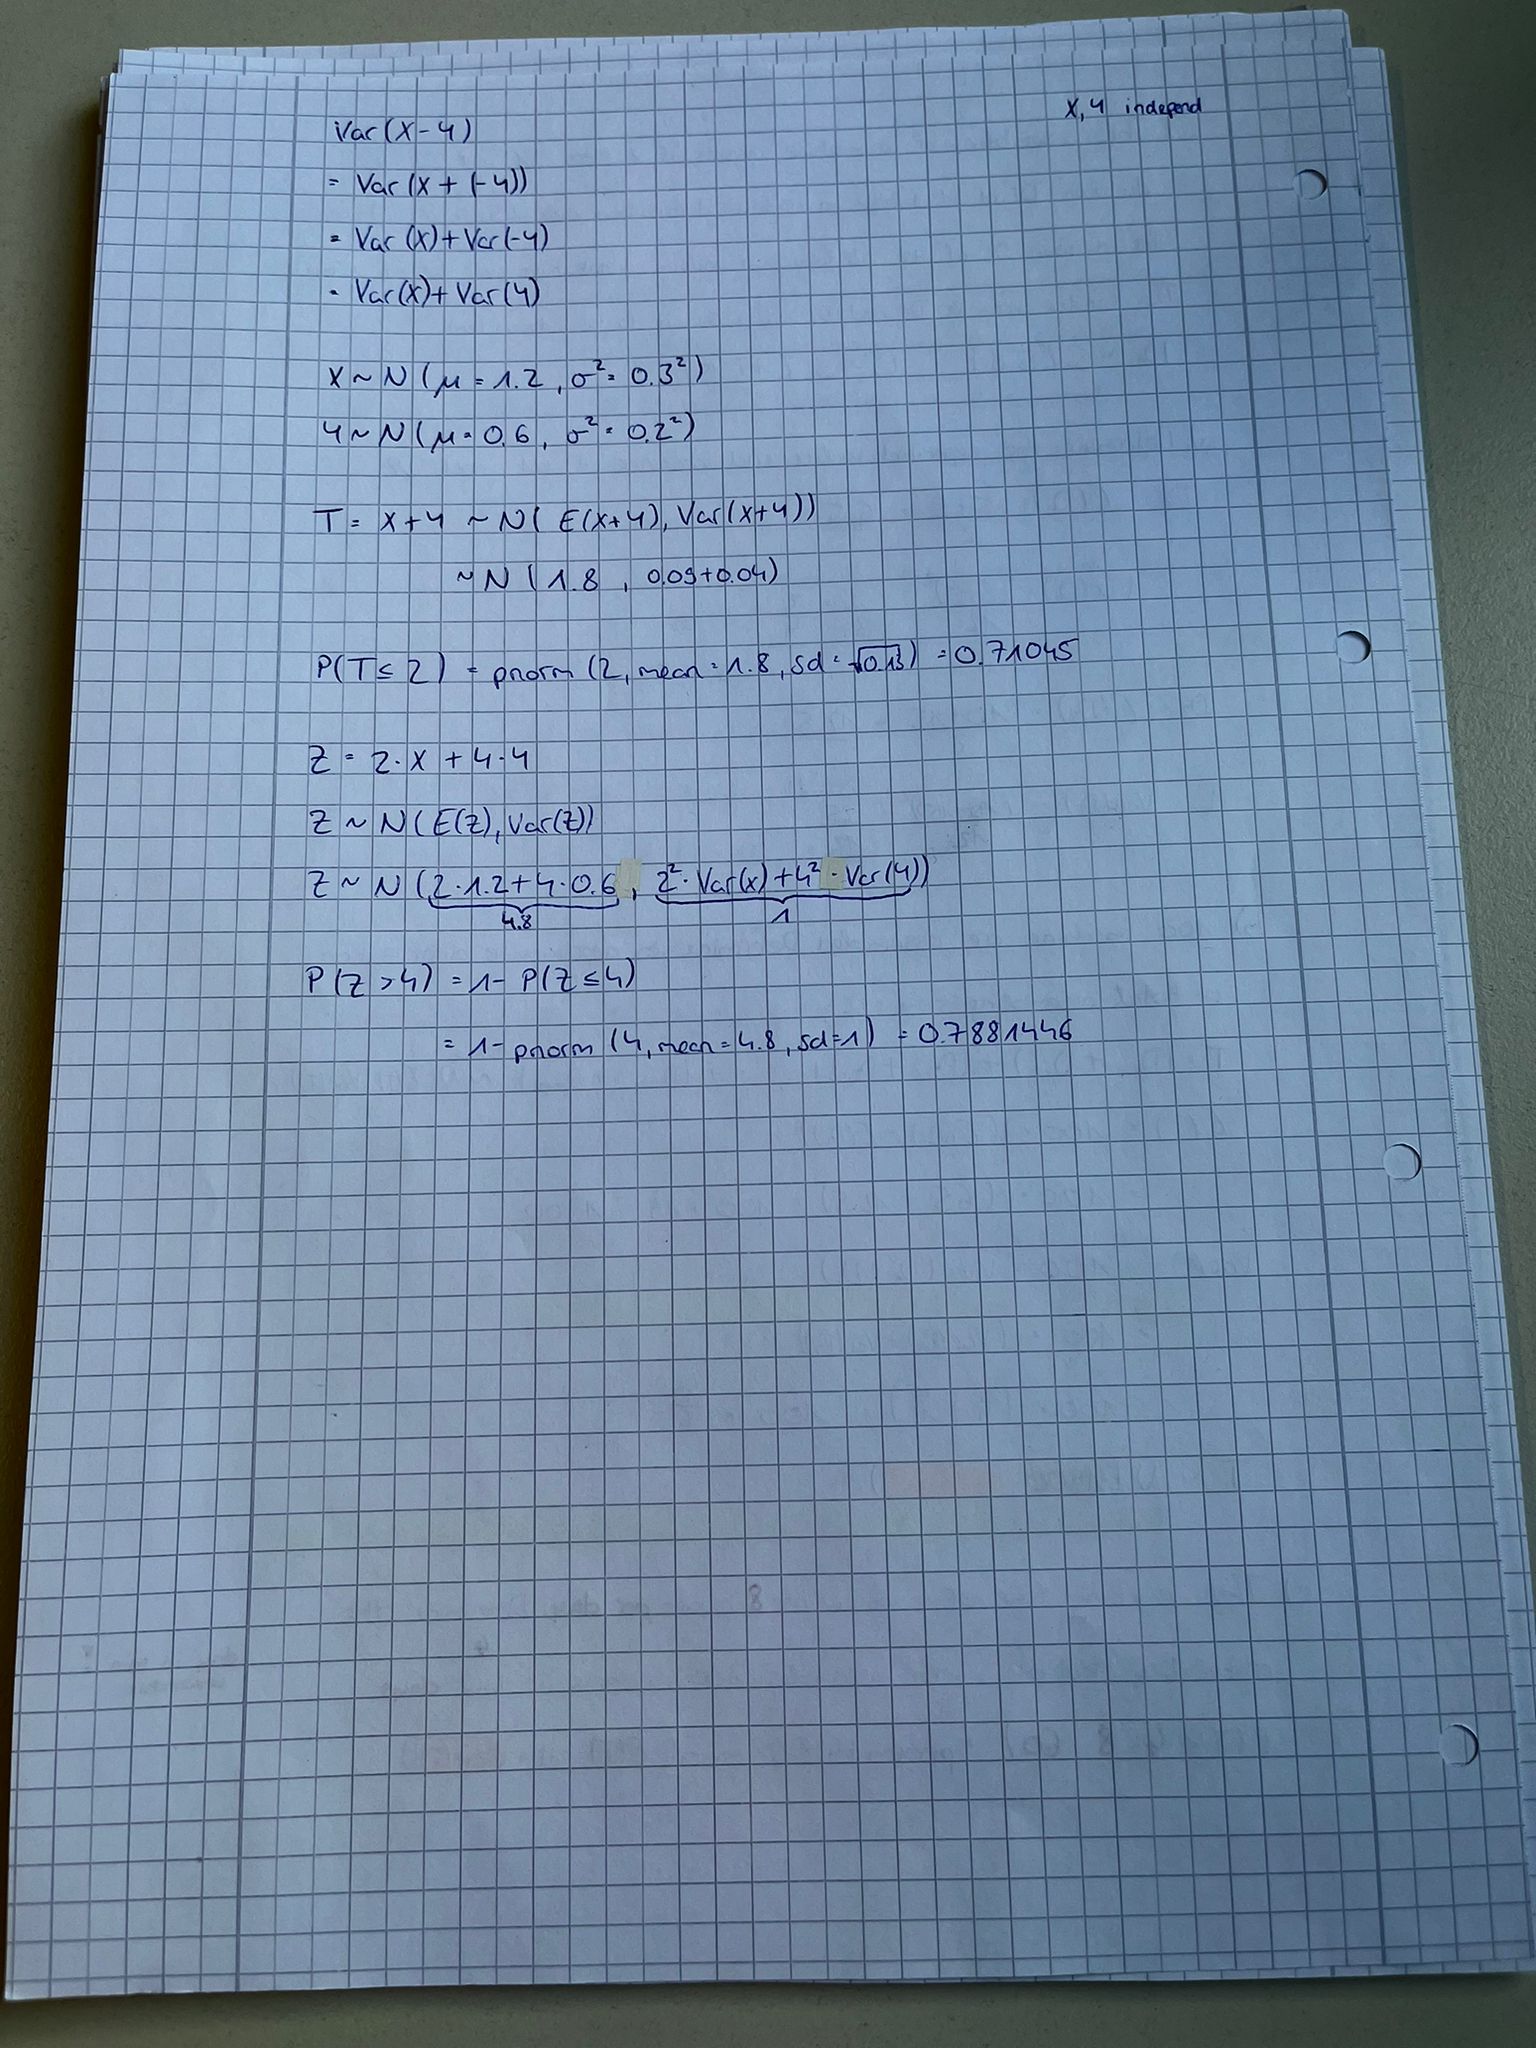 X, Y independ
Var(X-Y)
= Var(X + (-Y))
= Var(X) + Var(-Y)
= Var(X) + Var(Y)
X ~ N(μ = 1.2, σ² = 0.3²)
Y ~ N(μ = 0.6, σ² = 0.2²)
T = X+Y ~ N( E(X+Y), Var(X+Y))
~ N (1.8, 0.09+0.04)
P(T ≤ 2) = pnorm (2, mean = 1.8, sd = √0.13) = 0.71045
Z = 2·X + 4·Y
Z ~ N(E(Z), Var(Z))
Z ~ N (2·1.2+4·0.6, 2²·Var(X)+4²·Var(Y))
4.8 1
P(Z > 4) = 1 - P(Z ≤ 4)
= 1 - pnorm (4, mean = 4.8, sd = 1) = 0.7881446